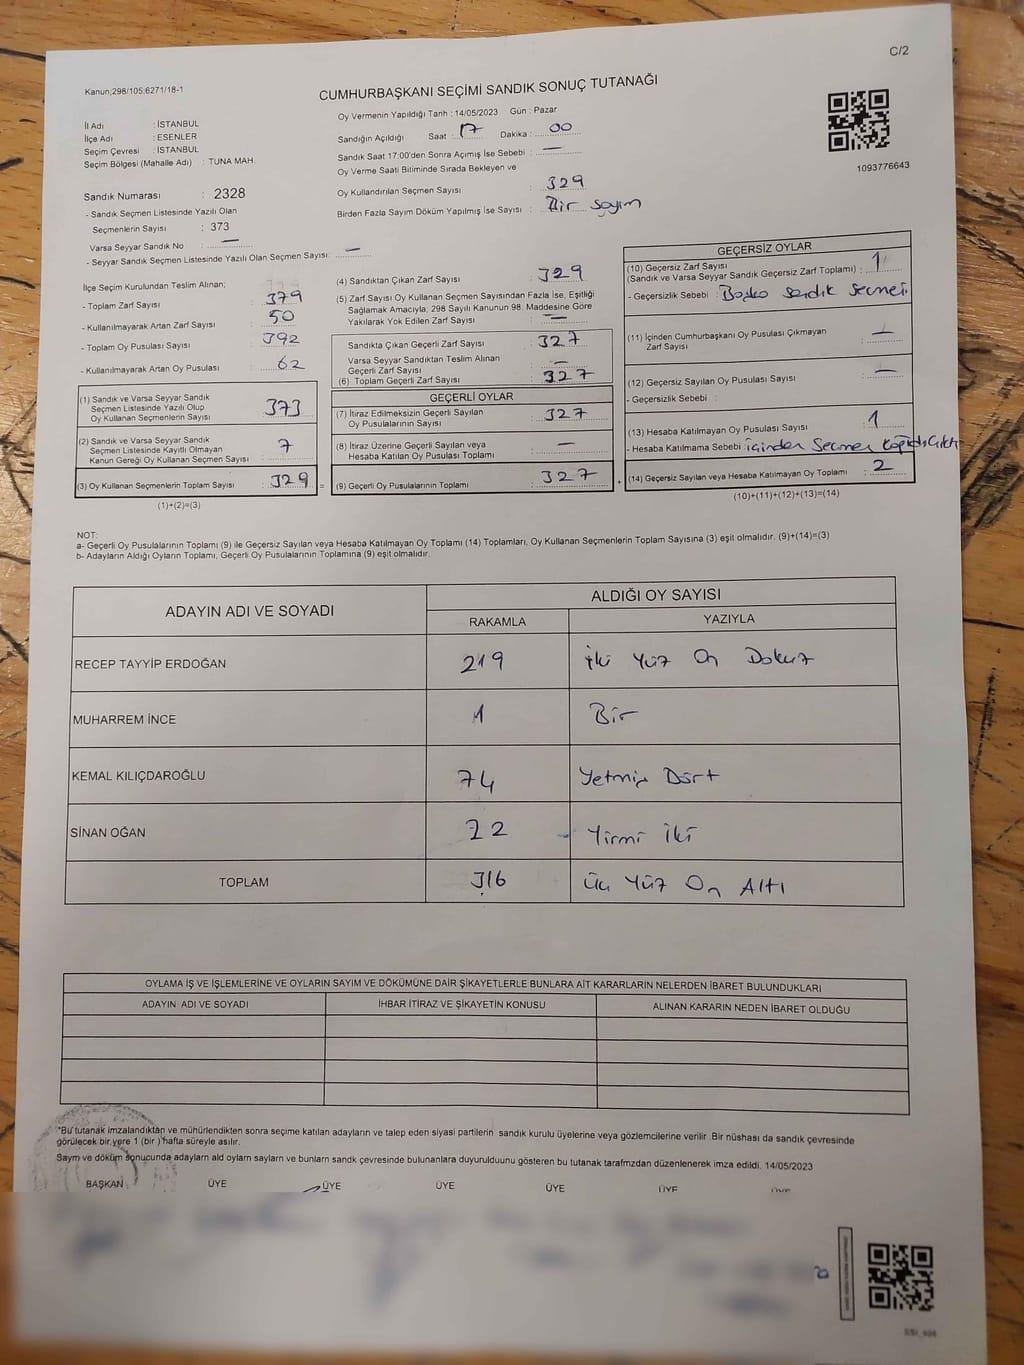 C/2
Kanun;298/105;6271/18-1
CUMHURBAŞKANI SEÇİMİ SANDIK SONUÇ TUTANAĞI
İl Adı : İSTANBUL
İlçe Adı : ESENLER
Seçim Çevresi : İSTANBUL
Seçim Bölgesi (Mahalle Adı) : TUNA MAH.
Oy Vermenin Yapıldığı Tarih : 14/05/2023 Gün : Pazar
Sandığın Açıldığı Saat : 17 Dakika : 00
Sandık Saat 17:00'den Sonra Açılmış İse Sebebi : —
Oy Verme Saati Bitiminde Sırada Bekleyen ve
Oy Kullandırılan Seçmen Sayısı : 329
Birden Fazla Sayım Döküm Yapılmış İse Sayısı : Bir sayım
1093776643
Sandık Numarası : 2328
- Sandık Seçmen Listesinde Yazılı Olan
Seçmenlerin Sayısı : 373
Varsa Seyyar Sandık No : —
- Seyyar Sandık Seçmen Listesinde Yazılı Olan Seçmen Sayısı: —
İlçe Seçim Kurulundan Teslim Alınan;
- Toplam Zarf Sayısı : 379
- Kullanılmayarak Artan Zarf Sayısı : 50
- Toplam Oy Pusulası Sayısı : 392
- Kullanılmayarak Artan Oy Pusulası : 62
(1) Sandık ve Varsa Seyyar Sandık
Seçmen Listesinde Yazılı Olup
Oy Kullanan Seçmenlerin Sayısı : 373
(2) Sandık ve Varsa Seyyar Sandık
Seçmen Listesinde Kayıtlı Olmayan
Kanun Gereği Oy Kullanan Seçmen Sayısı : 7
(3) Oy Kullanan Seçmenlerin Toplam Sayısı : 329 =
(1)+(2)=(3)
(4) Sandıktan Çıkan Zarf Sayısı : 329
(5) Zarf Sayısı Oy Kullanan Seçmen Sayısından Fazla İse, Eşitliği
Sağlamak Amacıyla; 298 Sayılı Kanunun 98. Maddesine Göre
Yakılarak Yok Edilen Zarf Sayısı : —
Sandıkta Çıkan Geçerli Zarf Sayısı : 327
Varsa Seyyar Sandıktan Teslim Alınan
Geçerli Zarf Sayısı : —
(6) Toplam Geçerli Zarf Sayısı : 327
GEÇERLİ OYLAR
(7) İtiraz Edilmeksizin Geçerli Sayılan
Oy Pusulalarının Sayısı : 327
(8) İtiraz Üzerine Geçerli Sayılan veya
Hesaba Katılan Oy Pusulası Toplamı : —
(9) Geçerli Oy Pusulalarının Toplamı : 327 +
GEÇERSİZ OYLAR
(10) Geçersiz Zarf Sayısı
(Sandık ve Varsa Seyyar Sandık Geçersiz Zarf Toplamı) : 1
- Geçersizlik Sebebi : Başka sandık seçmeni
(11) İçinden Cumhurbaşkanı Oy Pusulası Çıkmayan
Zarf Sayısı : —
(12) Geçersiz Sayılan Oy Pusulası Sayısı : —
- Geçersizlik Sebebi :
(13) Hesaba Katılmayan Oy Pusulası Sayısı : 1
- Hesaba Katılmama Sebebi : içinden Seçmen kağıdı Çıktı
(14) Geçersiz Sayılan veya Hesaba Katılmayan Oy Toplamı : 2
(10)+(11)+(12)+(13)=(14)
NOT:
a- Geçerli Oy Pusulalarının Toplamı (9) ile Geçersiz Sayılan veya Hesaba Katılmayan Oy Toplamı (14) Toplamları, Oy Kullanan Seçmenlerin Toplam Sayısına (3) eşit olmalıdır. (9)+(14)=(3)
b- Adayların Aldığı Oyların Toplamı, Geçerli Oy Pusulalarının Toplamına (9) eşit olmalıdır.
ADAYIN ADI VE SOYADI ALDIĞI OY SAYISI
RAKAMLA YAZIYLA
RECEP TAYYİP ERDOĞAN 219 İki Yüz On Dokuz
MUHARREM İNCE 1 Bir
KEMAL KILIÇDAROĞLU 74 Yetmiş Dört
SİNAN OĞAN 22 Yirmi İki
TOPLAM 316 Üç Yüz On Altı
OYLAMA İŞ VE İŞLEMLERİNE VE OYLARIN SAYIM VE DÖKÜMÜNE DAİR ŞİKAYETLERLE BUNLARA AİT KARARLARIN NELERDEN İBARET BULUNDUKLARI
ADAYIN ADI VE SOYADI İHBAR İTİRAZ VE ŞİKAYETİN KONUSU ALINAN KARARIN NEDEN İBARET OLDUĞU
*Bu tutanak imzalandıktan ve mühürlendikten sonra seçime katılan adayların ve talep eden siyasi partilerin sandık kurulu üyelerine veya gözlemcilerine verilir. Bir nüshası da sandık çevresinde
görülecek bir yere 1 (bir ) hafta süreyle asılır.
Sayım ve döküm sonucunda adayların ald oyların saylarn ve bunlarn sandk çevresinde bulunanlara duyurulduunu gösteren bu tutanak tarafmzdan düzenlenerek imza edildi. 14/05/2023
BAŞKAN ÜYE ÜYE ÜYE ÜYE ÜYE ÜYE